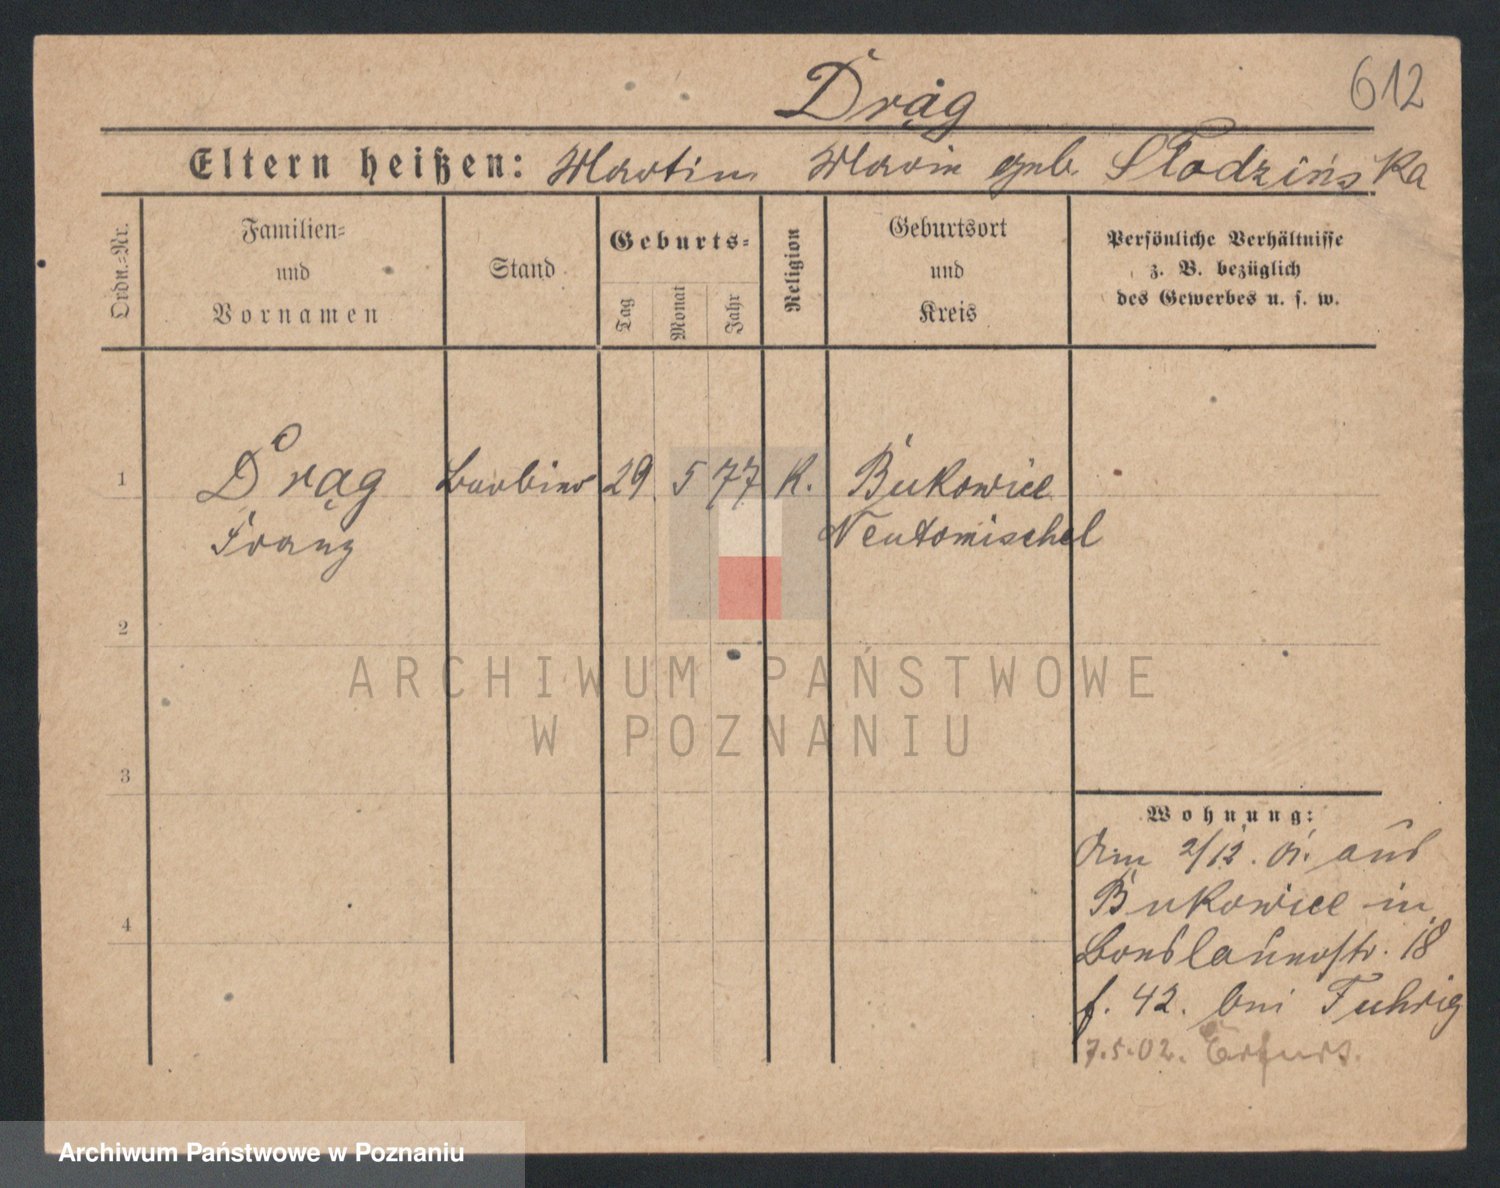 Drąg 612
Eltern heißen: Martin Marie geb. Słodzińska
Ordn.=Nr.
Familien=
und
Vornamen
Stand
Geburts=
Tag
Monat
Jahr
Religion
Geburtsort
und
Kreis
Persönliche Verhältnisse
z. B. bezüglich
des Gewerbes u. s. w.
1 Drąg Barbier 29. 5 77 K. Bukowiec
Franz Neutomischel
2
ARCHIWUM PAŃSTWOWE
W POZNANIU
3
Wohnung:
Am 2/12. 01. aus
Bukowiec in
18
4
f. 42. bei Fuhrig
7.5.02. Erfurt.
Archiwum Państwowe w Poznaniu